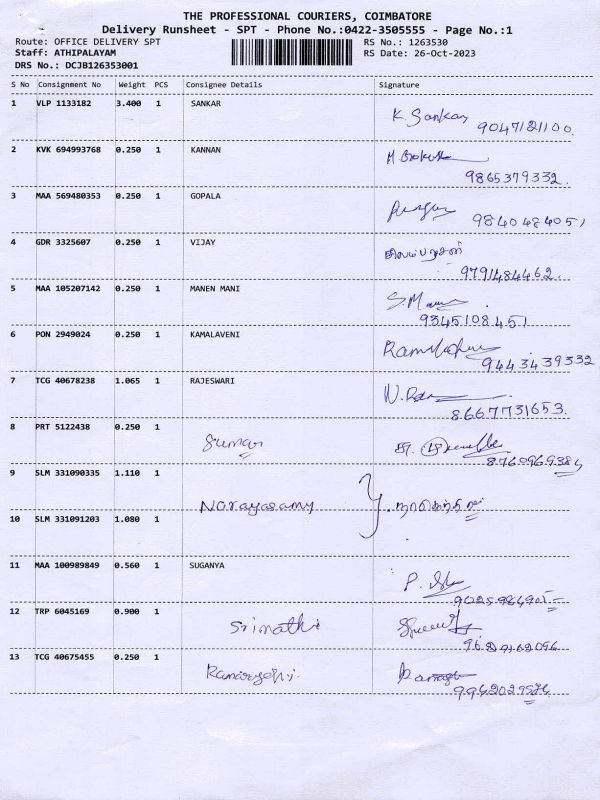 THE PROFESSIONAL COURIERS, COIMBATORE
Delivery Runsheet - SPT - Phone No.:0422-3505555 - Page No.:1
Route: OFFICE DELIVERY SPT RS No.: 1263530
Staff: ATHIPALAYAM RS Date: 26-Oct-2023
DRS No.: DCJB126353001
S No Consignment No Weight PCS Consignee Details Signature
1 VLP 1133182 3.400 1 SANKAR
K. Sankar 9047121100
2 KVK 694993768 0.250 1 KANNAN
9865379332.
3 MAA 569480353 0.250 1 GOPALA
9840484051
4 GDR 3325607 0.250 1 VIJAY
9791484462.
5 MAA 105207142 0.250 1 MANEN MANI
9345108451
6 PON 2949024 0.250 1 KAMALAVENI
9443439332
7 TCG 40678238 1.065 1 RAJESWARI
8667731653.
8 PRT 5122438 0.250 1
Suman
8760969384
9 SLM 331090335 1.110 1
Narayasamy
10 SLM 331091203 1.080 1
11 MAA 100989849 0.560 1 SUGANYA
9025984905
12 TRP 6045169 0.900 1
Srimathi
13 TCG 40675455 0.250 1